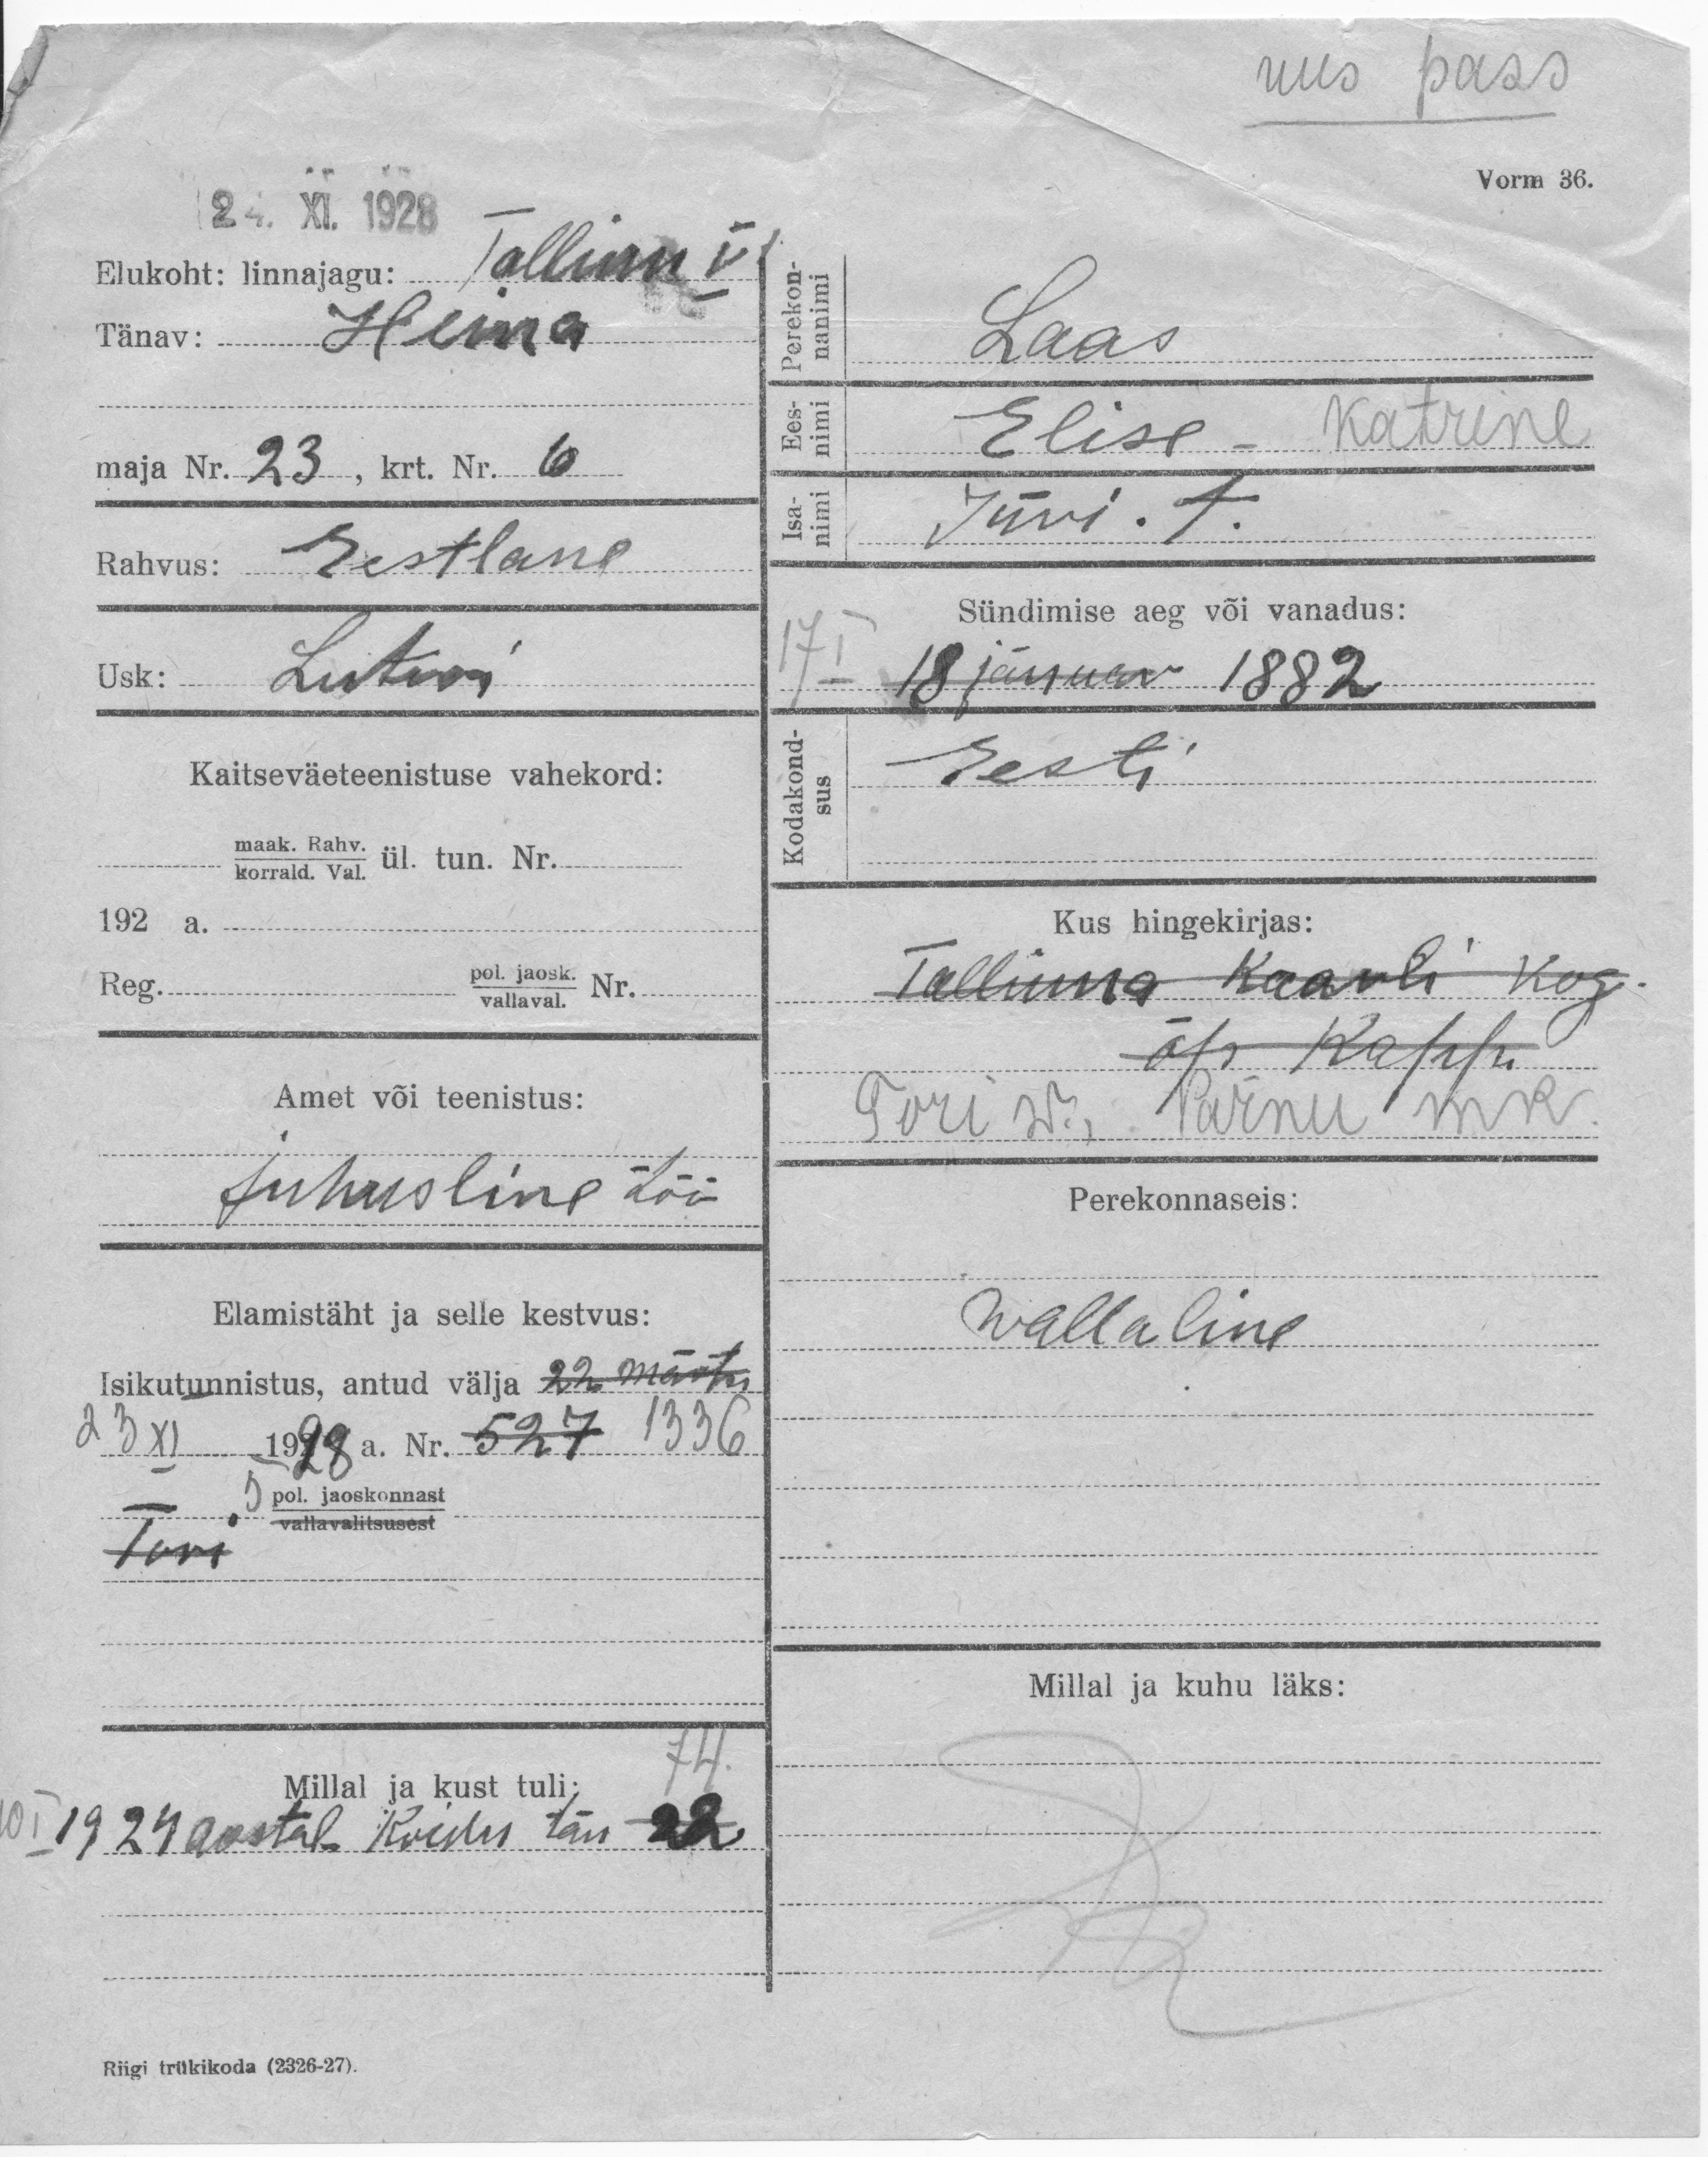 uus pass
Vorm 36.
24. XI. 1928
Elukoht: linnajagu: Tallinn V
Tänav: Heina
maja Nr. 23, krt. Nr. 6
Rahvus: Eestlane
Usk: Luteri
Kaitseväeteenistuse vahekord:
maak. Rahv.
korrald. Val. ül. tun. Nr.
192 a.
Reg. pol. jaosk.
vallaval. Nr.
Amet või teenistus:
juhusline töö
Elamistäht ja selle kestvus:
Isikutunnistus, antud välja 22 märtsi
23 XI 1928 a. Nr. 527 1336
5 pol. jaoskonnast
vallavalitsusest
Tori
Millal ja kust tuli: 74.
10 I 1924 aastal Koidu tän 22
Riigi trükikoda (2326-27).
Perekonnanimi
Laas
Eesnimi
Elise - Katrine
Isanimi
Jüri. t.
Sündimise aeg või vanadus:
17 I 18 jaanuar 1882
Kodakondsus
Eesti
Kus hingekirjas:
Tallinna Kaarli kog.
õp. Kapp.
Tori v., Pärnu mk.
Perekonnaseis:
wallaline
Millal ja kuhu läks: